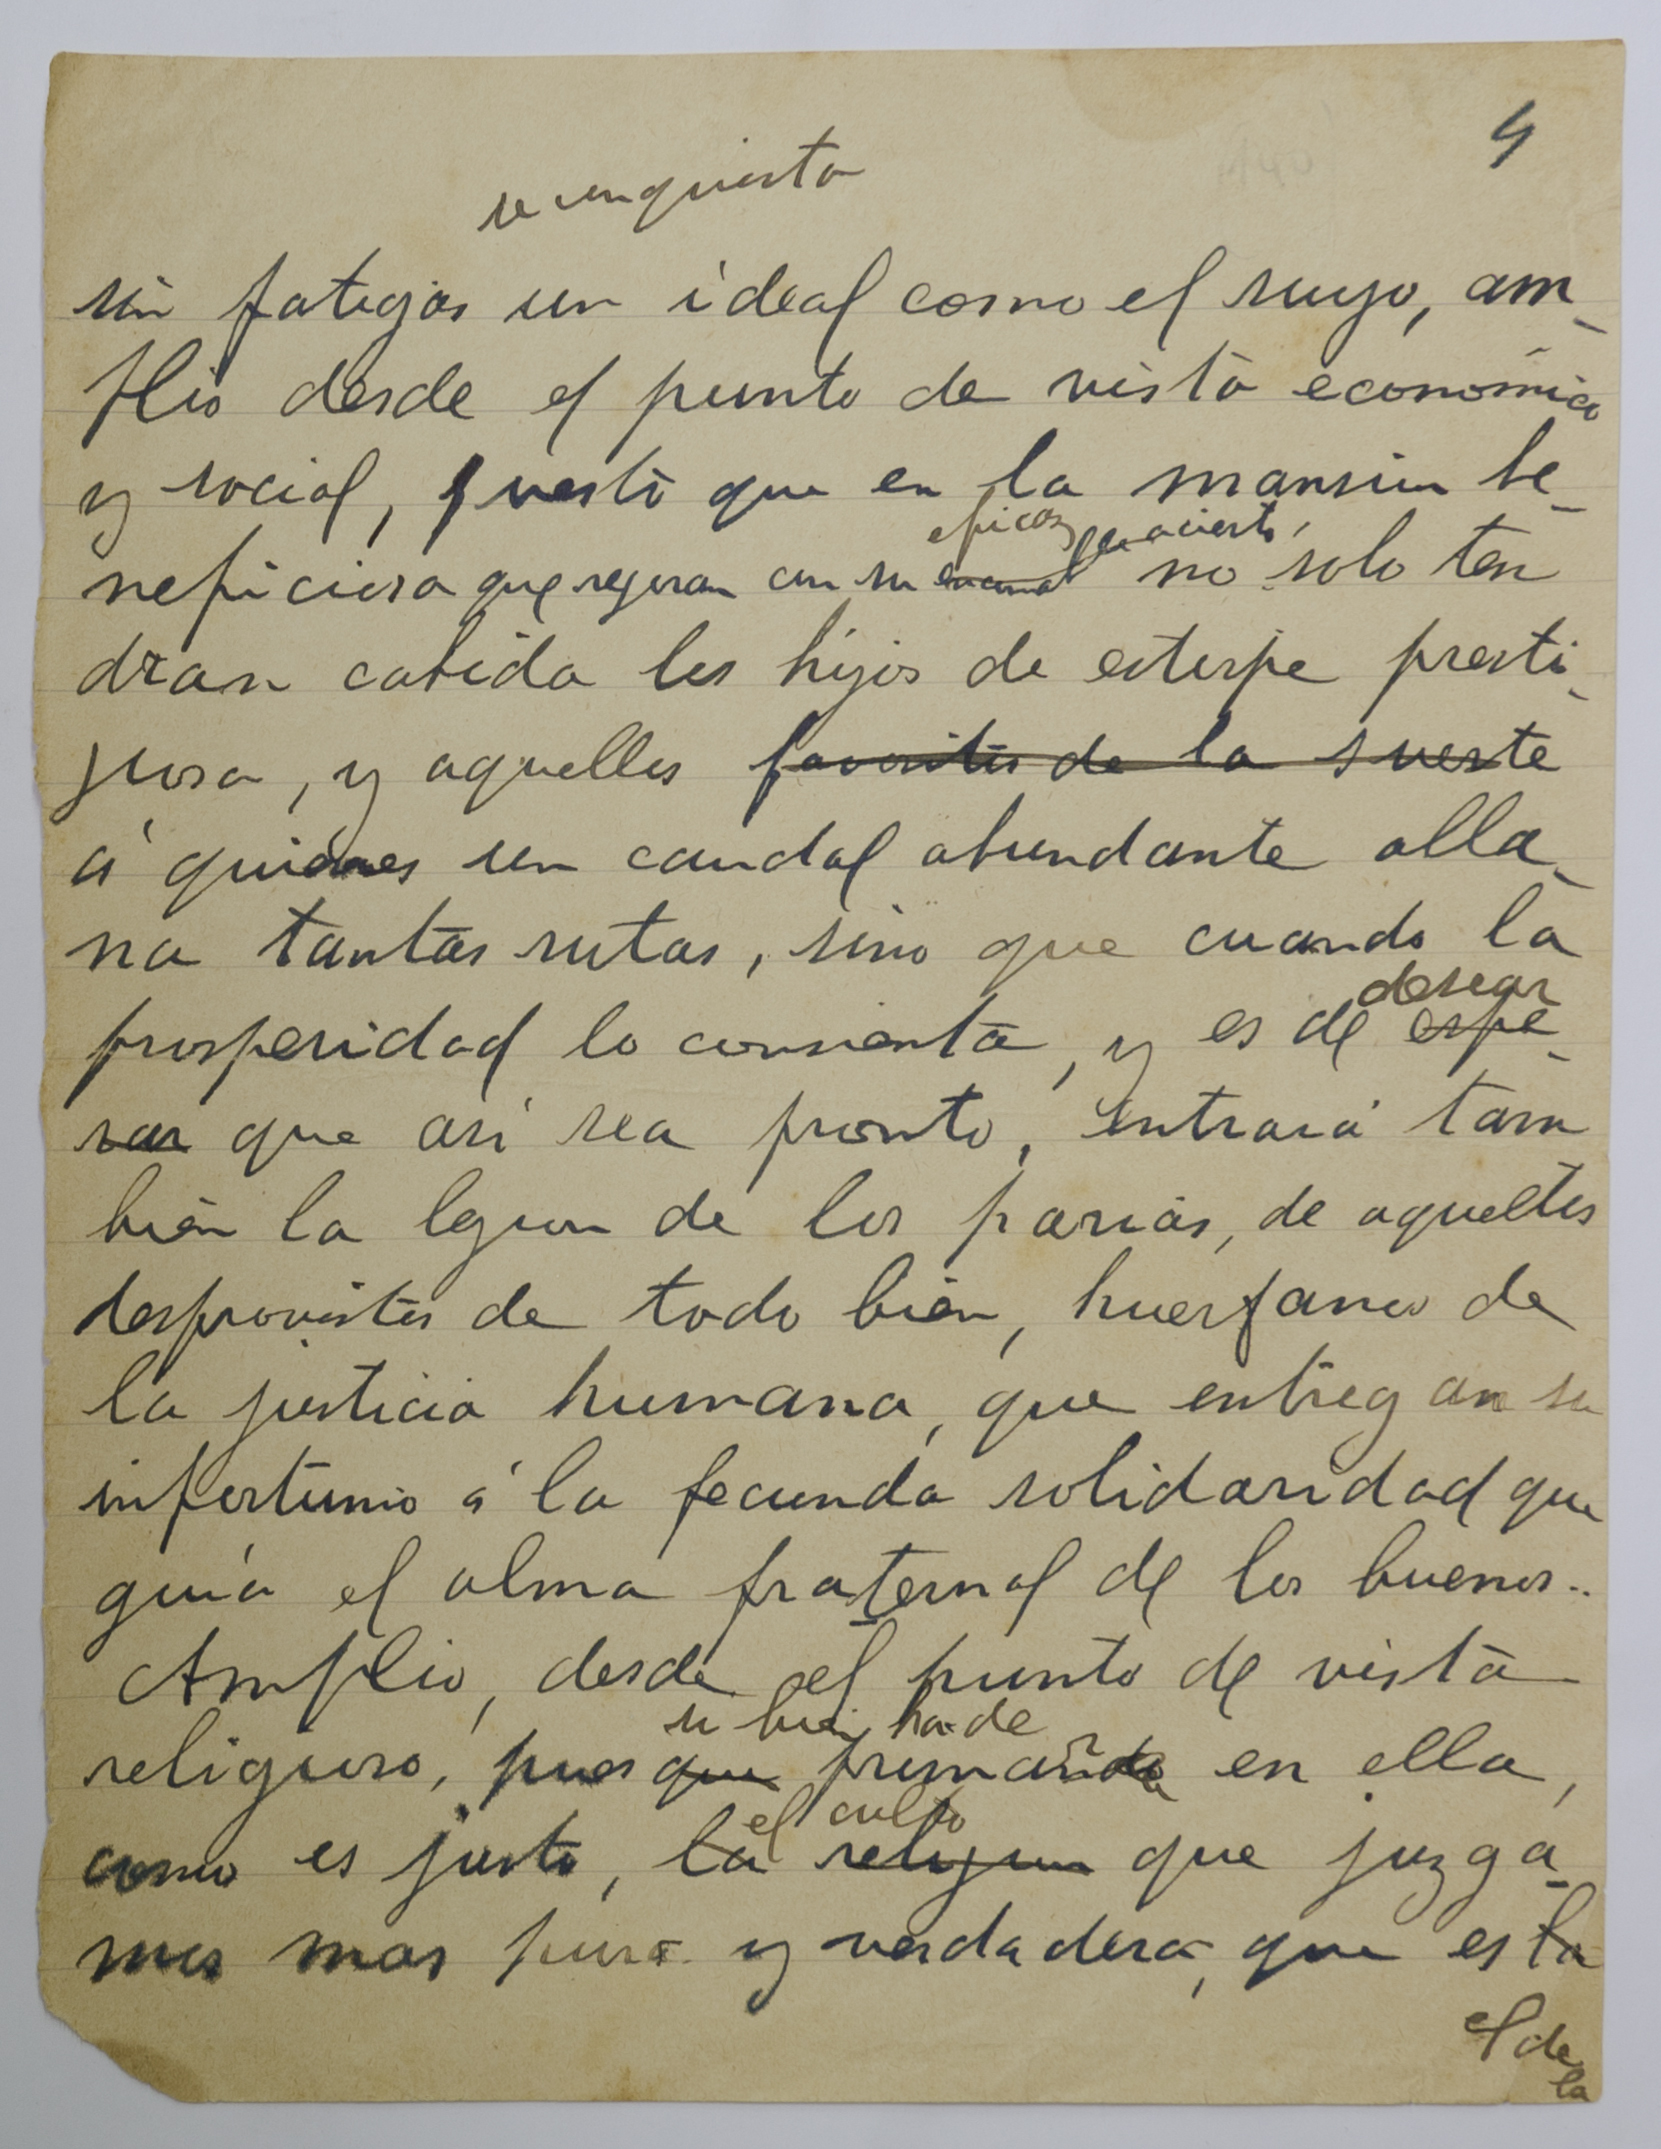 4
se conquista
sin fatigas un ideal como el suyo, am-
plio desde el punto de vista económico
y social, puesto que en la mansion be-
eficaz acierto,
neficiosa que regeran con su no solo ten
dran cabida los hijos de estirpe presti-
jiosa, y aquellos favoritos de la suerte
á quienes un caudal abundante alla-
na tantas rutas, sino que cuando la
desear
prosperidad lo consienta, y es de espe-
rar que asi sea pronto, entrará tam
bien la legion de los parias, de aquellos
desprovistos de todo bien, huerfanos de
la justicia humana, que entregan su
infortunio á la fecunda solidaridad que
guía el alma fraternal de los buenos..
Amplio, desde el punto de vista
si bien ha de
religioso, pues que primar en ella,
el culto
como es justo, la religion que juzga-
mos mas pura y verdadera, que es la
el de
la